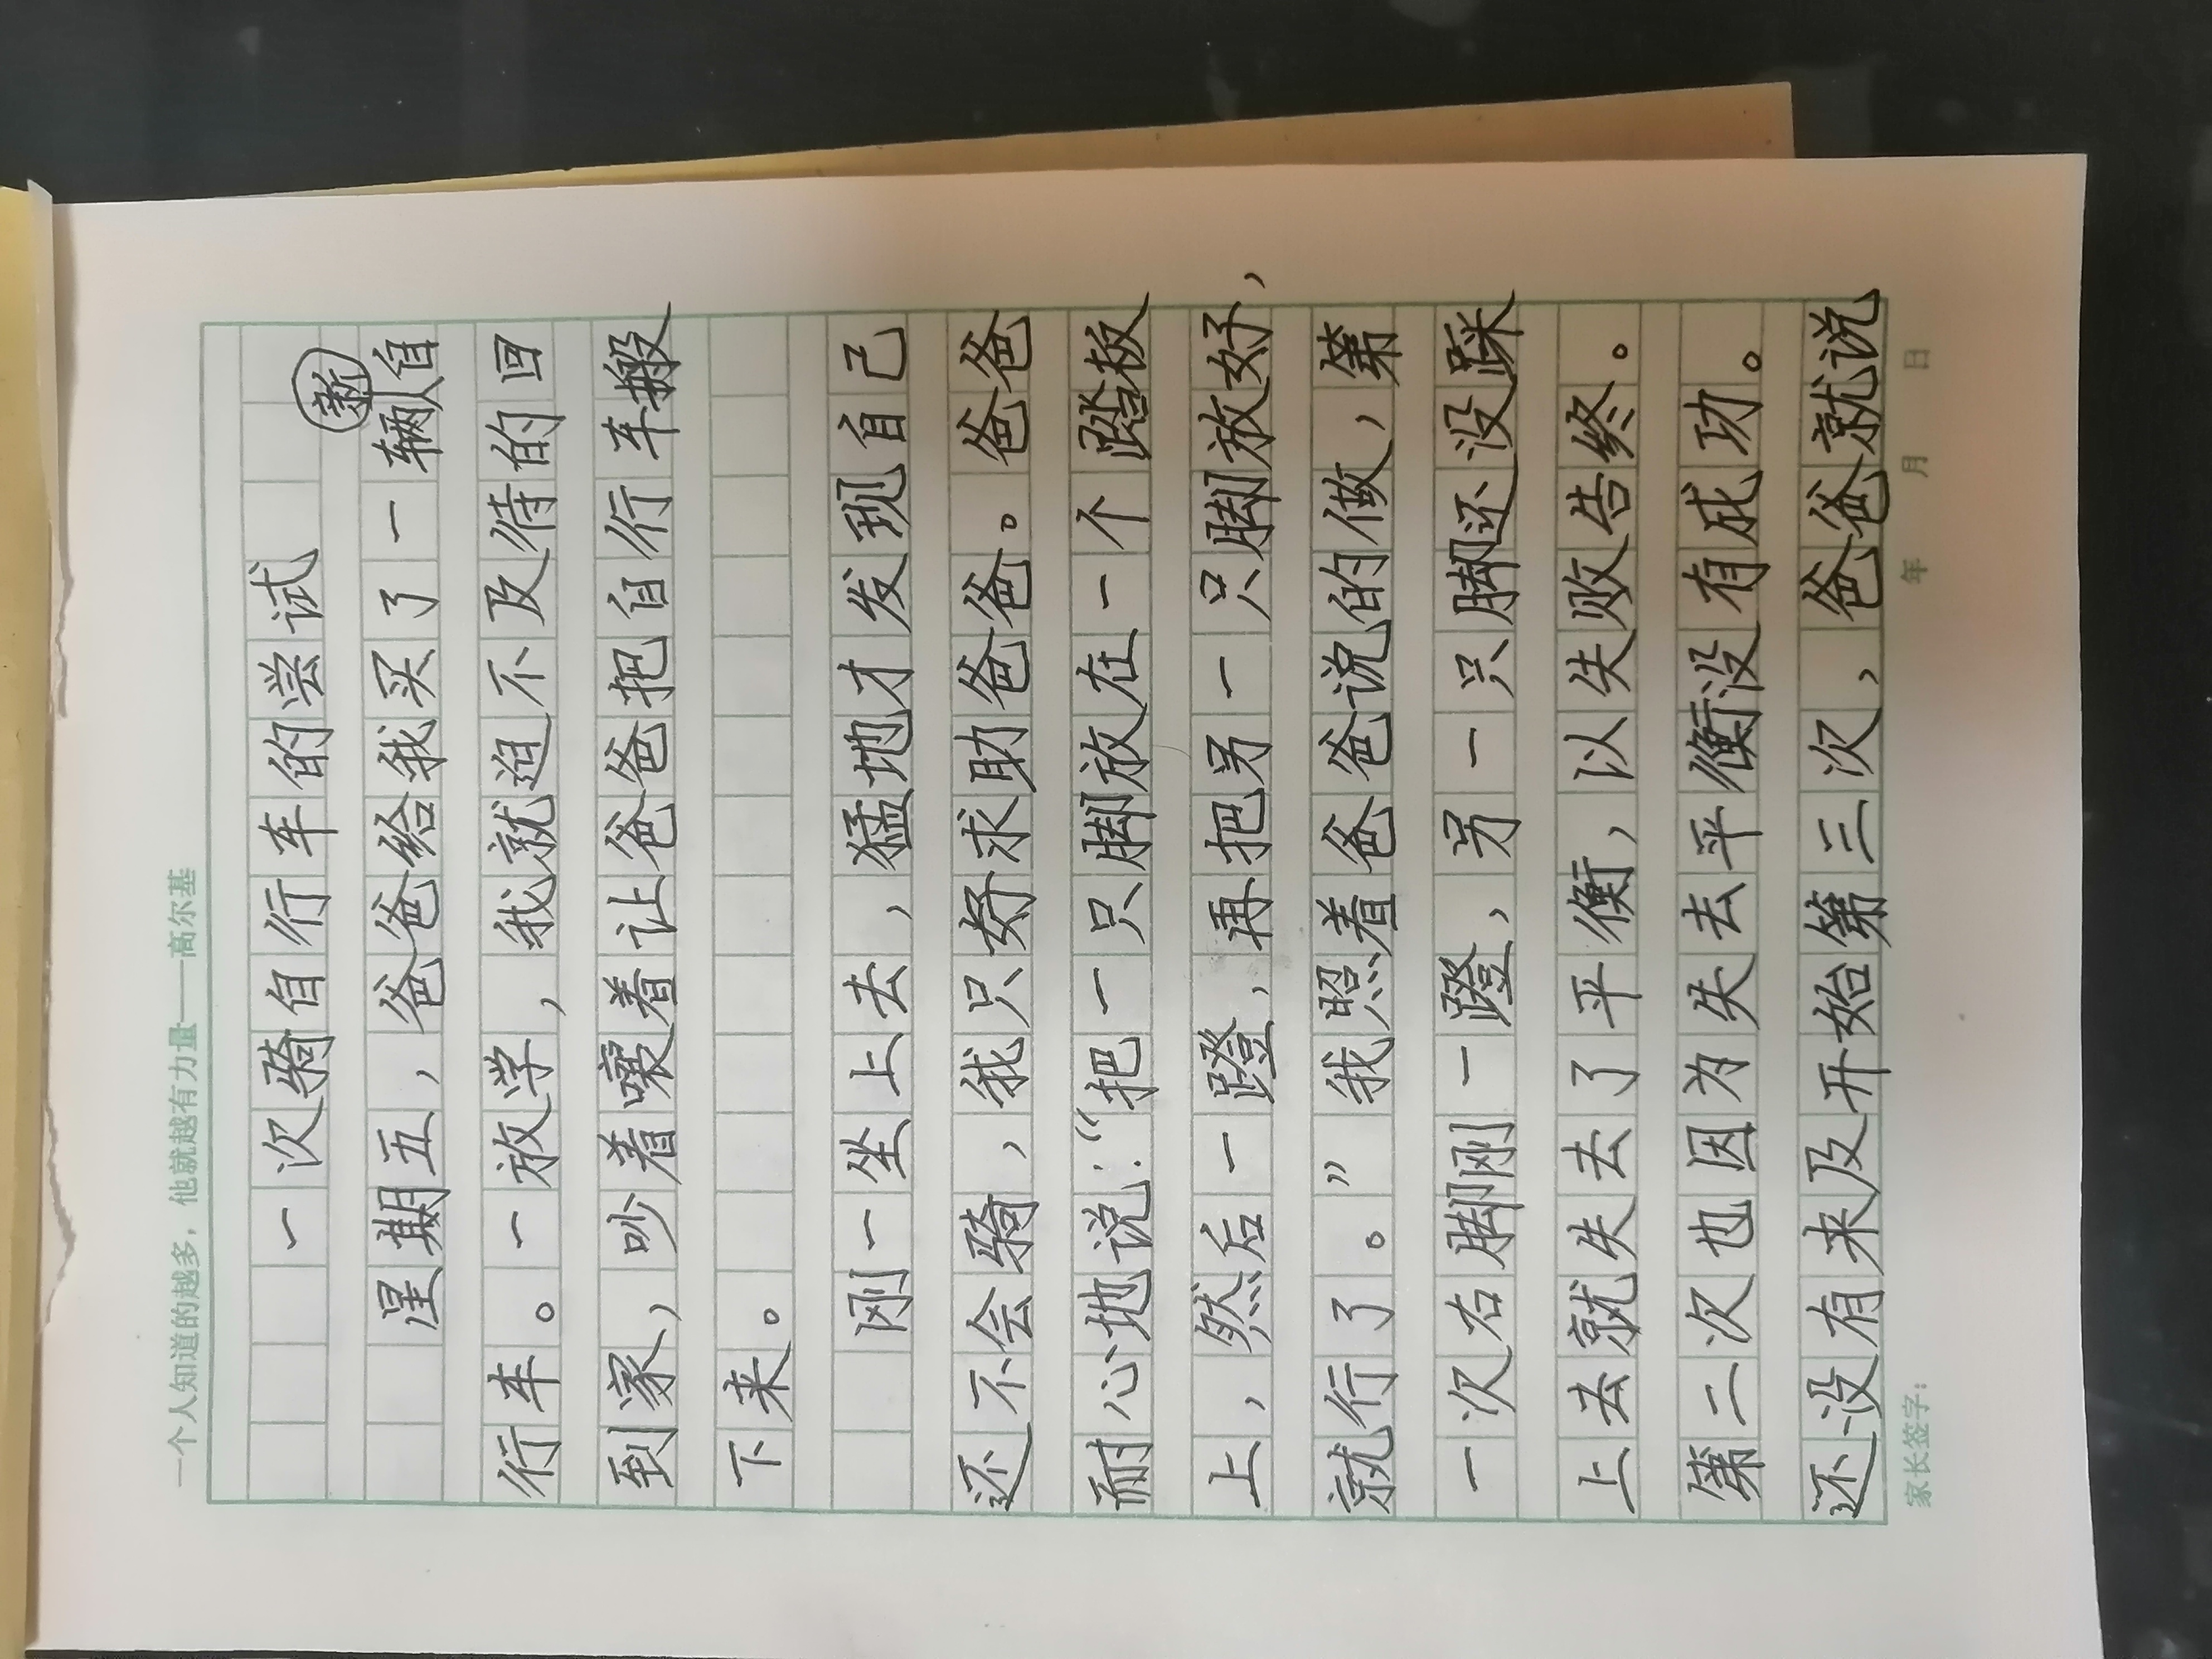 一个人知道的越多，他就越有力量——高尔基
一次骑自行车的尝试
新
星期五，爸爸给我买了一辆自
行车。一放学，我就迫不及待的回
到家，吵着嚷着让爸爸把自行车搬
下来。
刚一坐上去，猛地才发现自己
还不会骑，我只好求助爸爸。爸爸
耐心地说：“把一只脚放在一个踏板
上，然后一蹬，再把另一只脚放好，
就行了。”我照着爸爸说的做，第
一次右脚刚一蹬，另一只脚还没踩
上去就失去了平衡，以失败告终。
第二次也因为失去平衡没有成功。
还没有来及开始第三次，爸爸就说
家长签字： 年 月 日